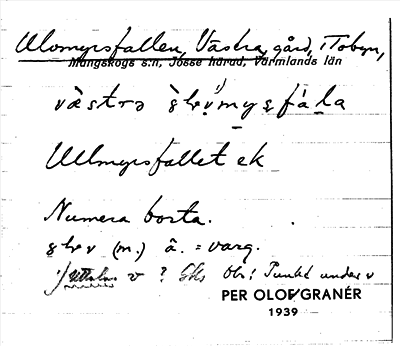 Ulvmyrsfallen, Västra, gård, i Tobyn,
Mangskogs s:n, Jösse härad, Värmlands län
västra
Ullmyrsfallet ek
Numera borta.
(m.) ä. = varg.
v ? Obs! Punkt under v
PER OLOF GRANÉR
1939